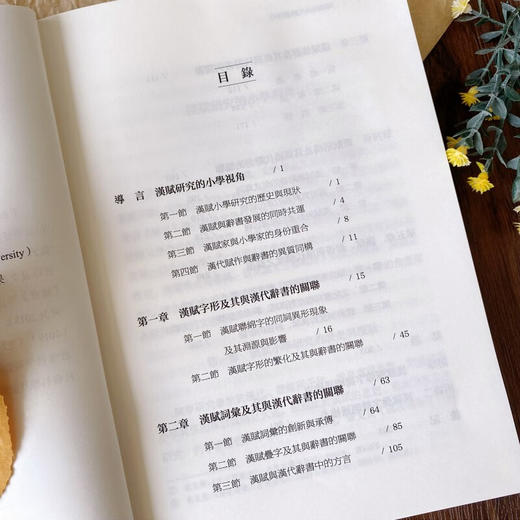 ersity )
果
目錄
導 言 漢賦研究的小學視角 / 1
第一節 漢賦小學研究的歷史與現狀 / 1
第二節 漢賦與辭書發展的同時共運 / 4
第三節 漢賦家與小學家的身份重合 / 8
第四節 漢代賦作與辭書的異質同構 / 11
第一章 漢賦字形及其與漢代辭書的關聯 / 15
第一節 漢賦聯綿字的同詞異形現象
及其淵源與影響 / 16
第二節 漢賦字形的繁化及其與辭書的關聯 / 45
第二章 漢賦詞彙及其與漢代辭書的關聯 / 63
第一節 漢賦詞彙的創新與承傳 / 64
第二節 漢賦疊字及其與辭書的關聯 / 85
第三節 漢賦與漢代辭書中的方言 / 105